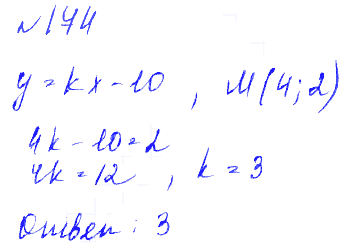 № 1744
y = kx - 10 , M(4; 2)
4k - 10 = 2
4k = 12 , k = 3
Ответ: 3